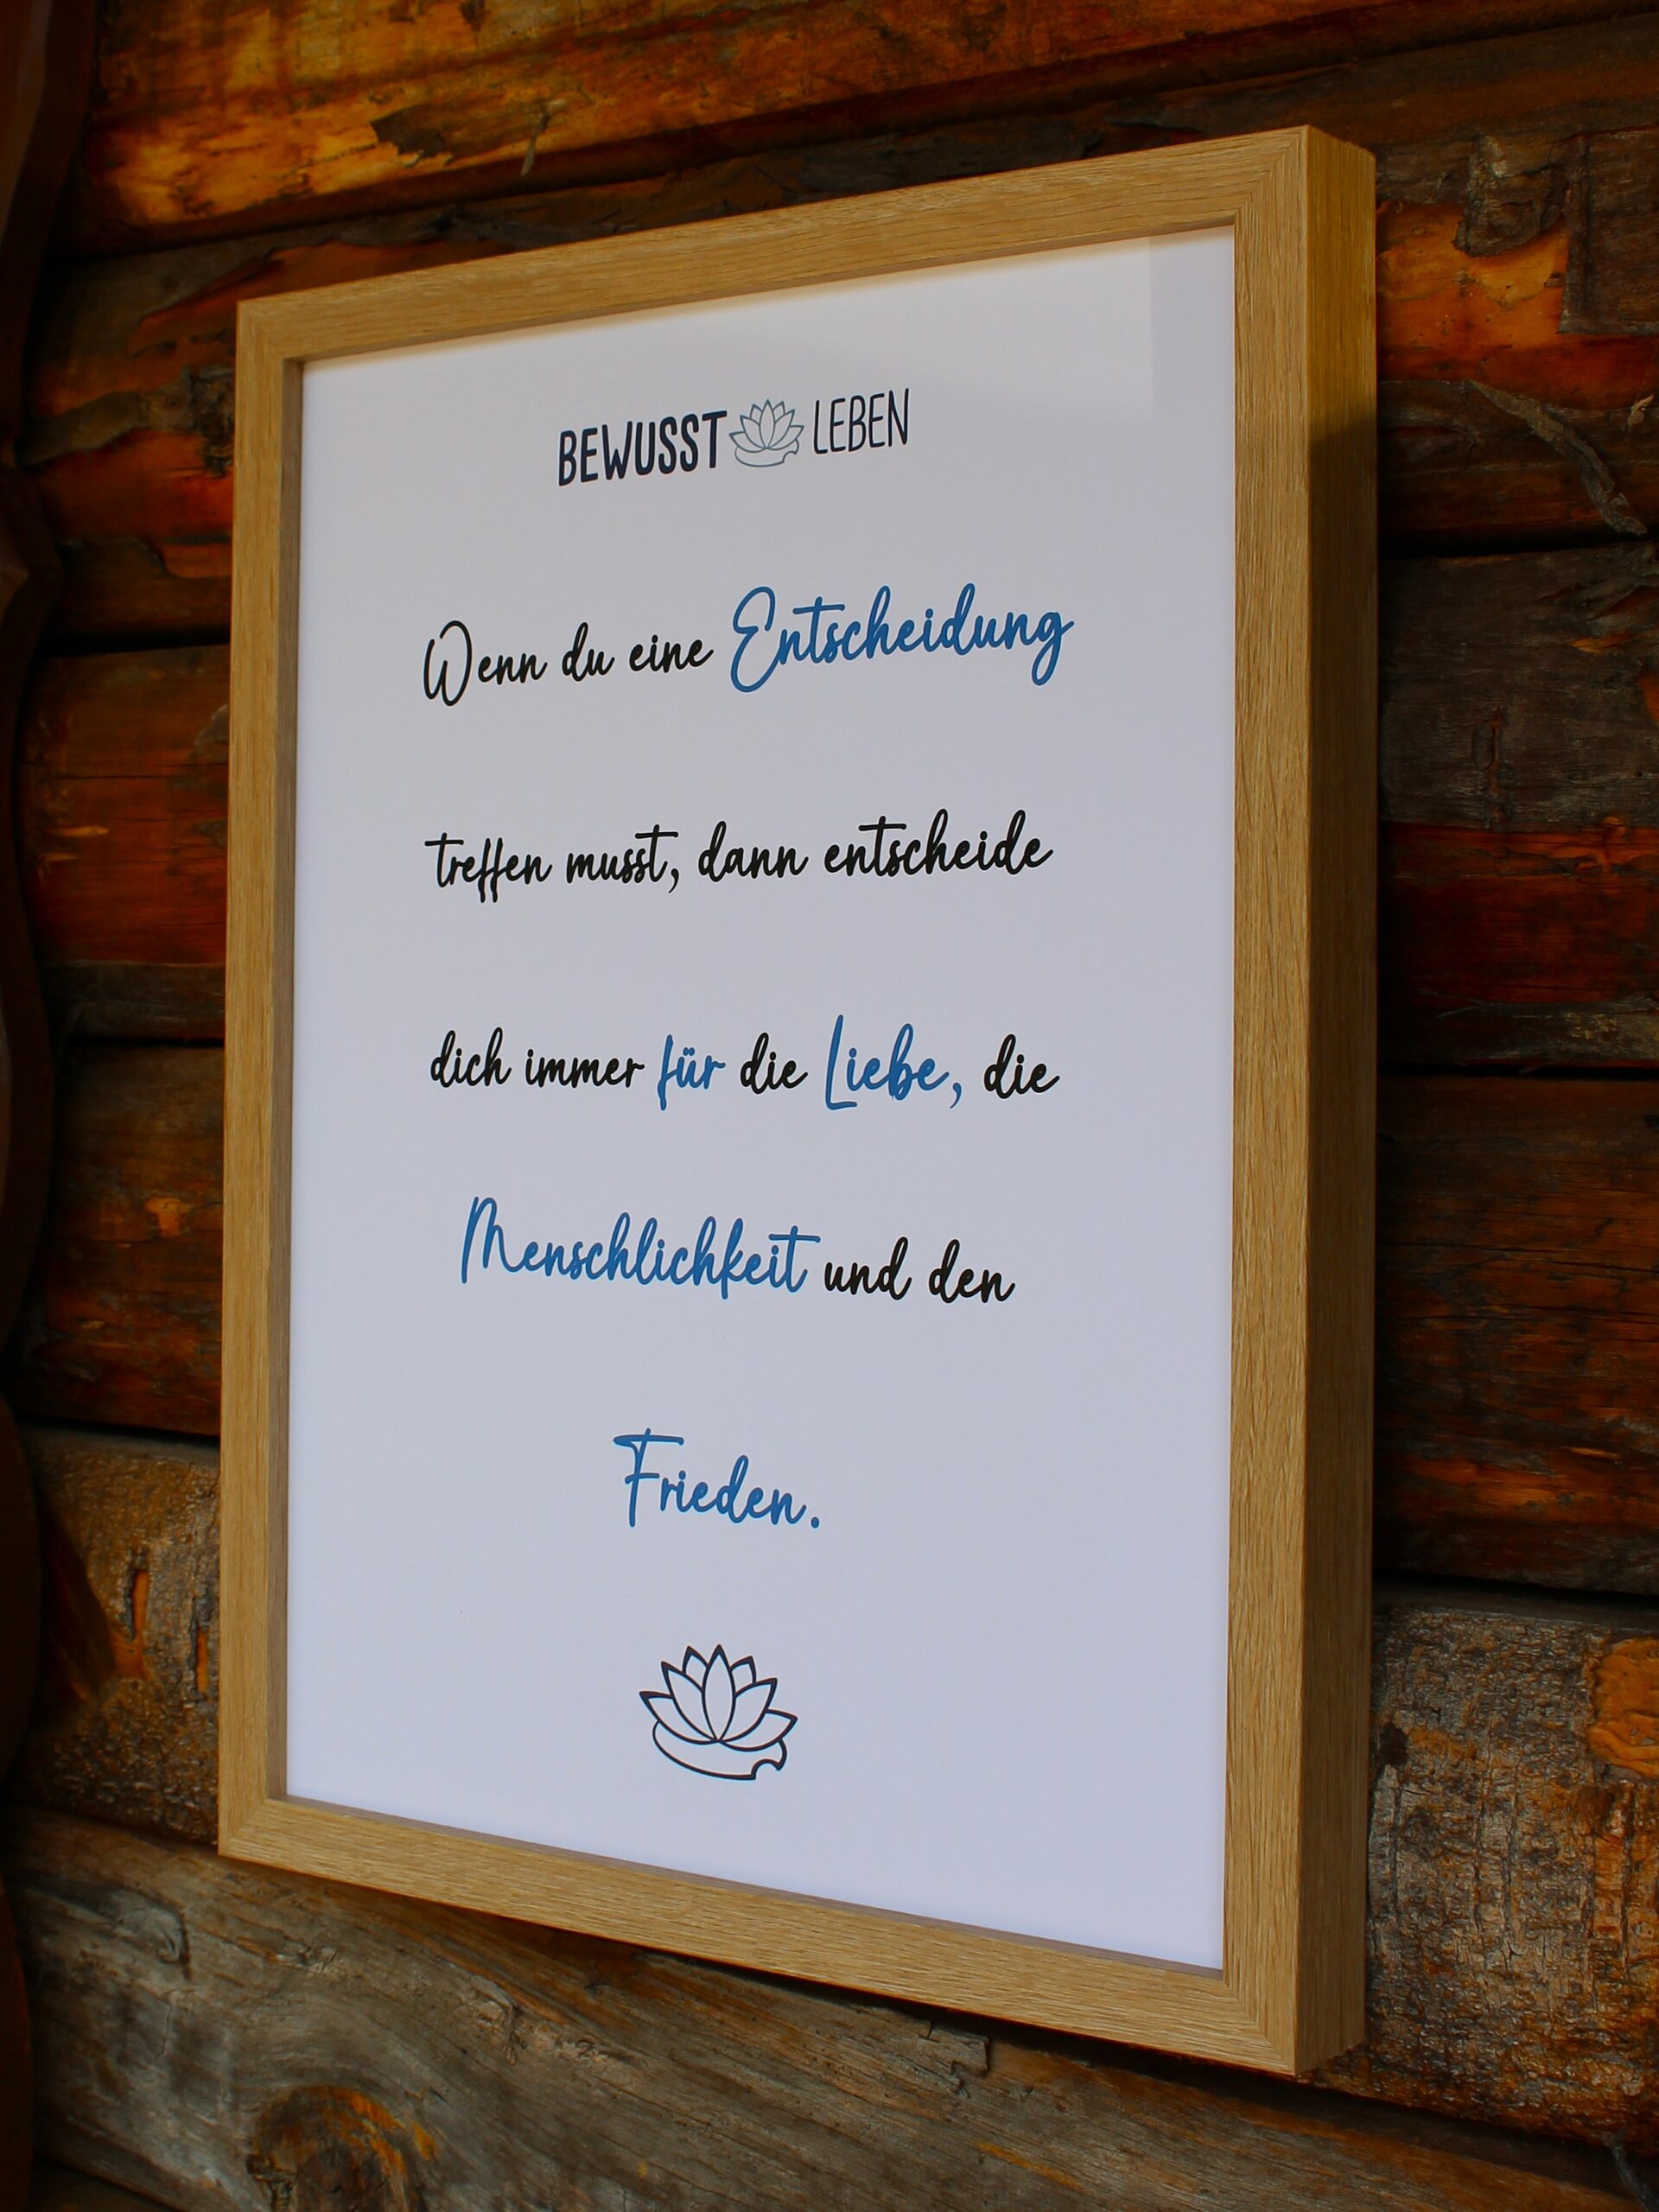 BEWUSST LEBEN
Wenn du eine Entscheidung
treffen musst, dann entscheide
dich immer für die Liebe, die
Menschlichkeit und den
Frieden.